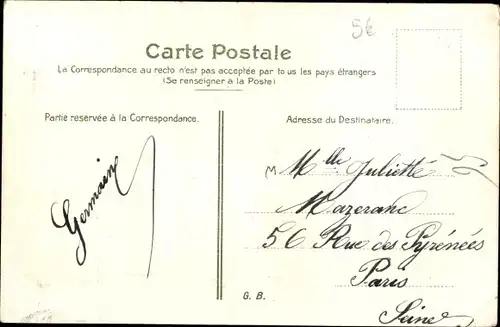 5€
Carte Postale
La Correspondance au recto n'est pas acceptée par tous les pays étrangers
(Se renseigner à la Poste)
Partie reservée à la Correspondance.
Adresse du Destinataire.
Germain
M Mlle Juliette
Mazeranc
56 Rue des Pyrénées
Paris
Seine
G. B.